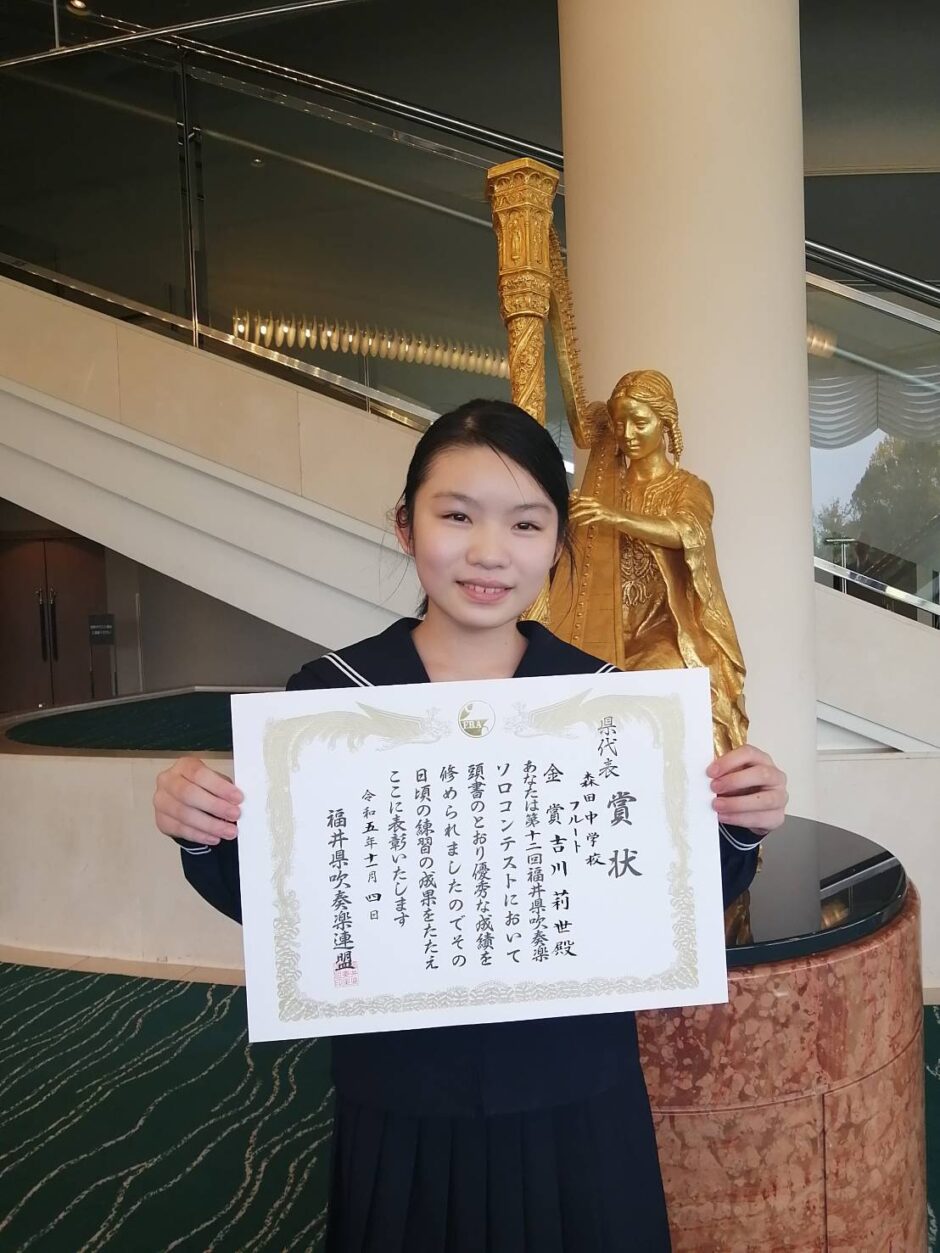 県代表
賞状
森田中学校
フルート
金賞 吉川莉世殿
あなたは第十二回福井県吹奏楽
ソロコンテストにおいて
頭書のとおり優秀な成績を
修められましたのでその
日頃の練習の成果をたたえ
ここに表彰いたします
令和五年十一月四日
福井県吹奏楽連盟
FBA